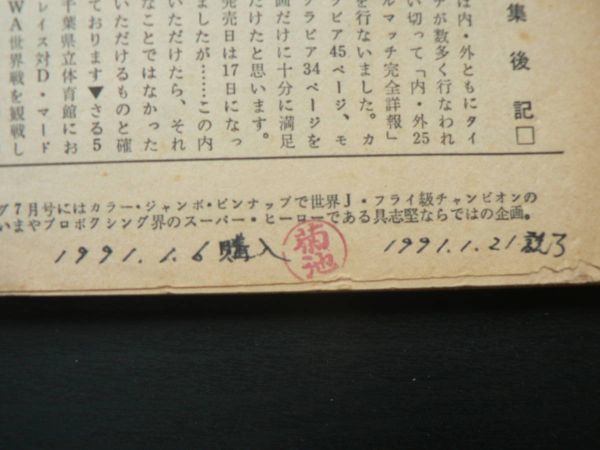 集後記□
は内・外ともにタイ
チが数多く行なわれ
い切って「内・外25
ルマッチ完全詳報」
を行ないました。カ
ラビア45ページ、モ
ラビア34ページを
画だけに十分に満足
だけたと思います。
発売日は17日になっ
ましたが……この内
いただけたら、それ
なことではなかった
いただけるものと確
ております▼さる5
千葉県立体育館にお
レイス対D・マード
WA世界戦を観戦し
グ7月号にはカラー・ジャンボ・ピンナップで世界J・フライ級チャンピオンの
いまやプロボクシング界のスーパー・ヒーローである具志堅ならではの企画。
1991.1.6購入 菊池 1991.1.21読了